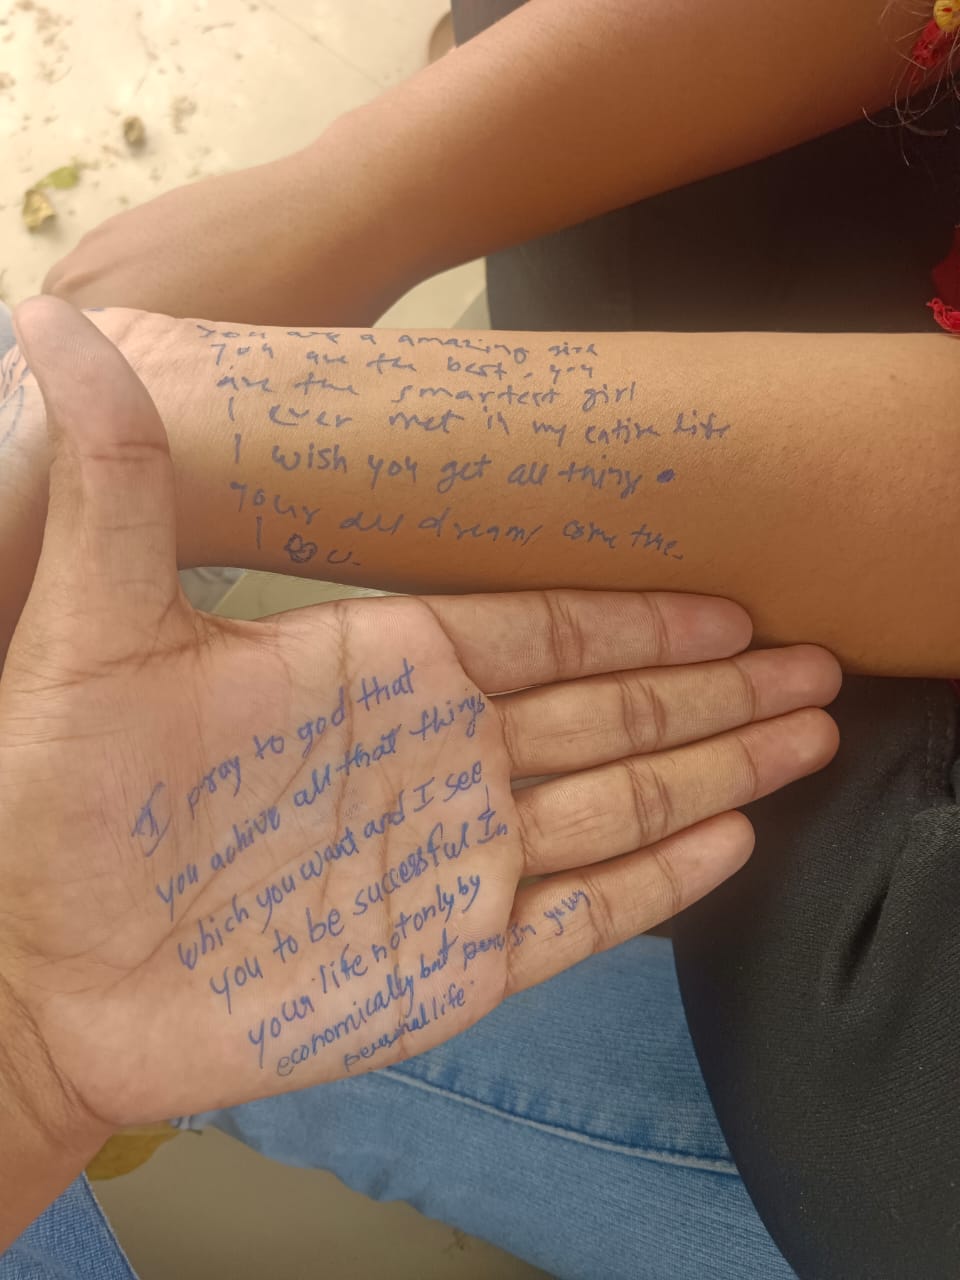 You are a amazing girl
You are the best, you
are the smartest girl
I ever met in my entire life
I wish you get all thing
Your all dreams come true.
I U.
I pray to god that
you achive all that things
which you want and I see
you to be successful In
your life not only by
economically but In your
personal life.